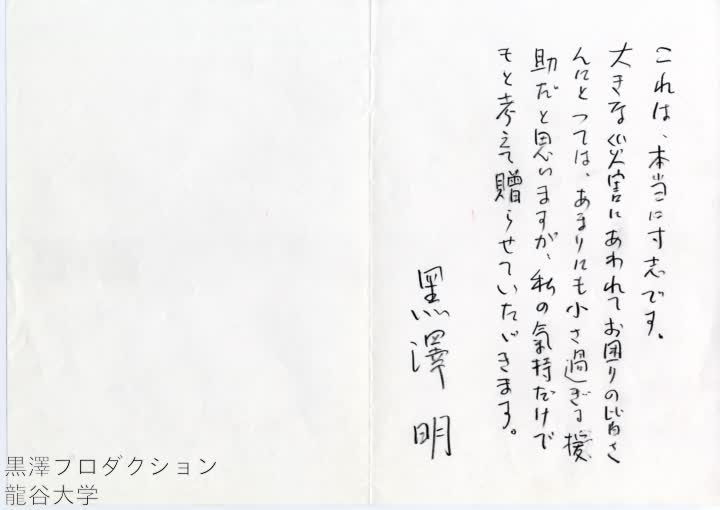 これは、本当に寸志です。
大きな災害にあわれてお困りの皆さ
んにとっては、あまりにも小さ過ぎる援
助だと思いますが、私の気持だけで
もと考えて贈らせていただきます。
黒澤 明
黒澤プロダクション
龍谷大学